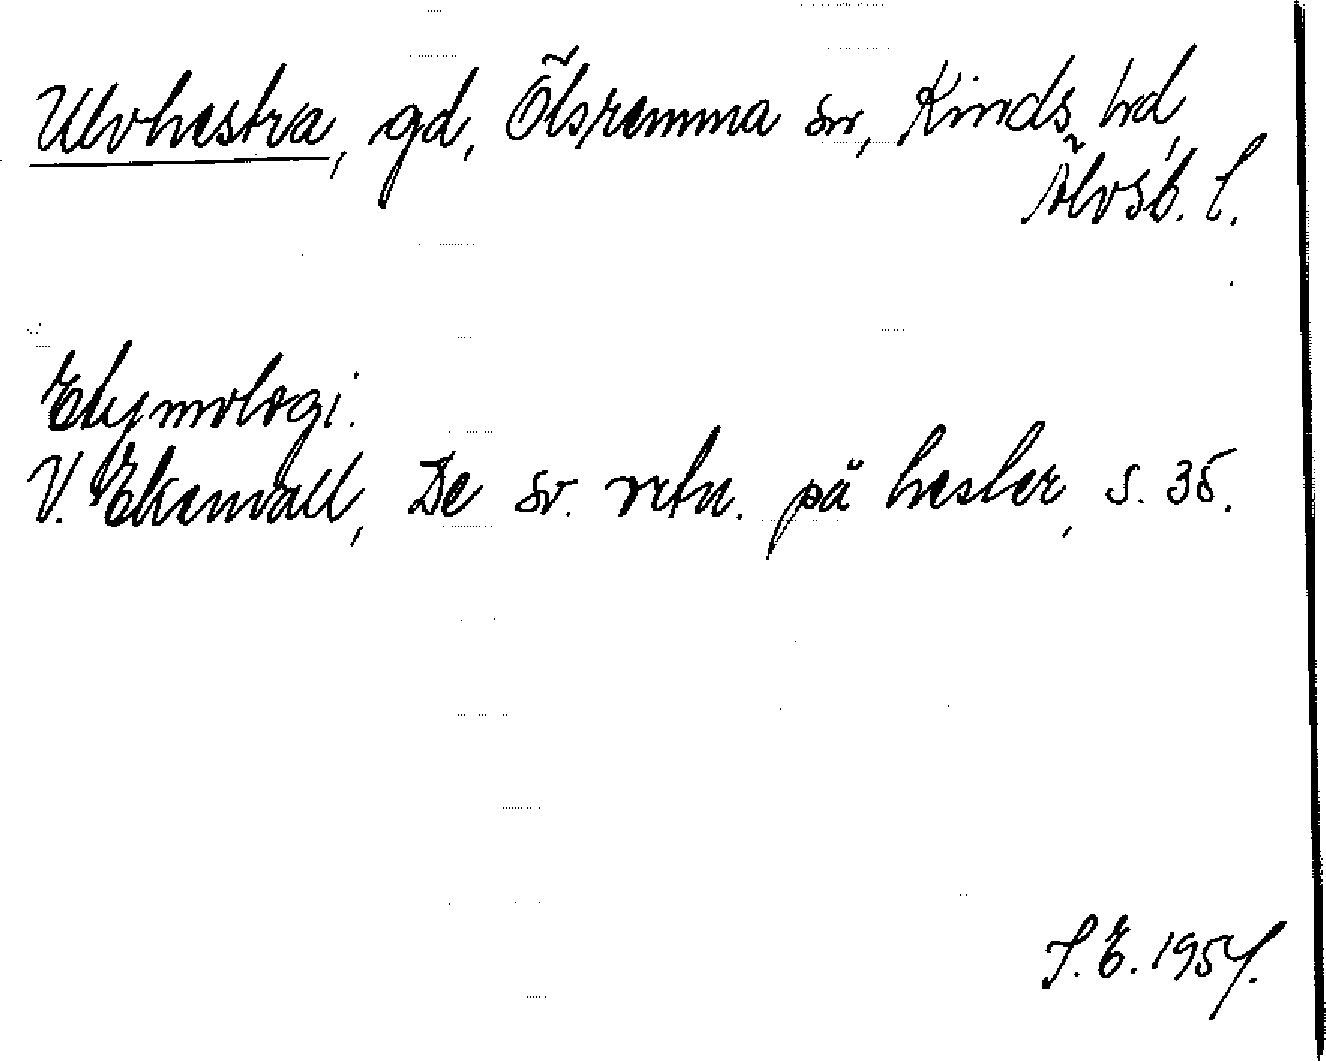 Ulvhestra, gd, Ölsremma sn, Kinds hd,
Älvsb. l.
Etymologi.
V. Ekenvall, De sv. ortn. på hester, s. 35.
S.E. 1957.